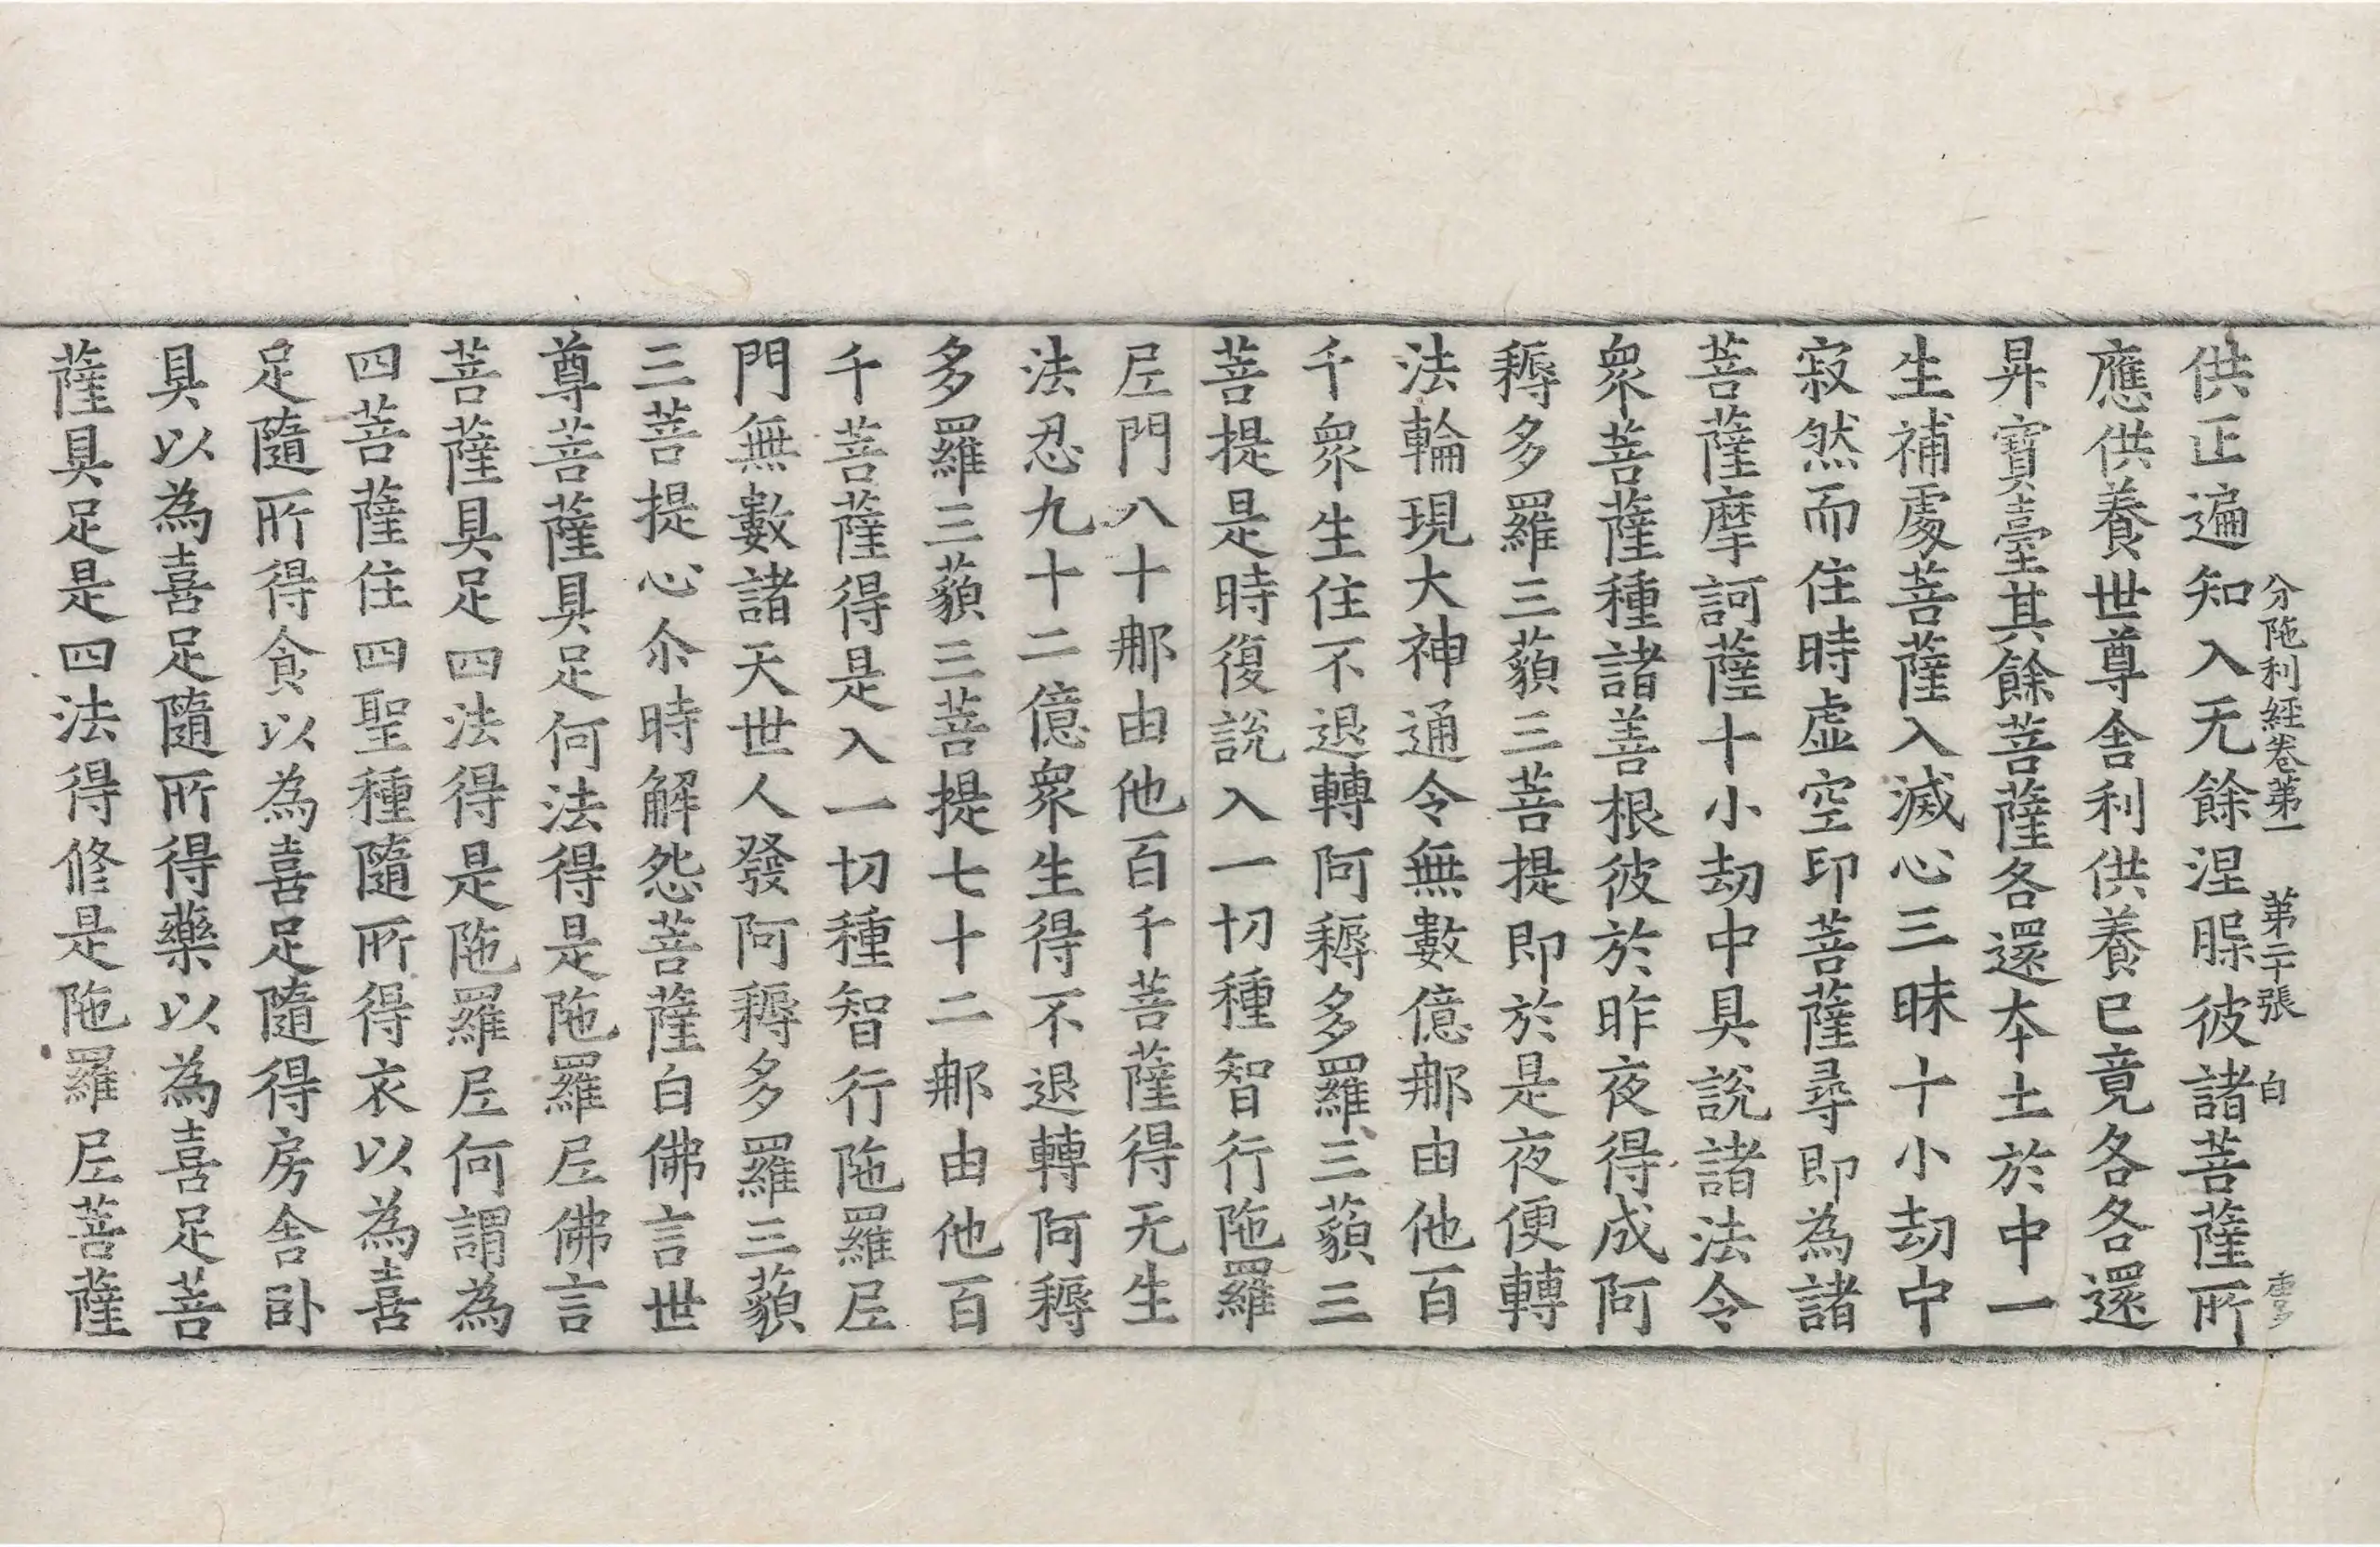 分陁利經卷苐一　苐二十張　白
供正遍知入无餘涅槃彼諸菩薩所
應供養世尊舎利供養已竟各各還
昇寳臺其餘菩薩各還夲土於中一
生補處菩薩入滅心三昧十小劫中
寂然而住時虚空印菩薩尋即為諸
菩薩摩訶薩十小劫中具說諸法令
衆菩薩種諸善根彼於昨夜得成阿
耨多羅三藐三菩提即於是夜便轉
法輪現大神通令無數億那由他百
千衆生住不退轉阿耨多羅三藐三
菩提是時復說入一切種智行陁羅
尼門八十那由他百千菩薩得无生
法忍九十二億衆生得不退轉阿耨
多羅三藐三菩提七十二那由他百
千菩薩得是入一切種智行陁羅尼
門無數諸天世人發阿耨多羅三藐
三菩提心尒時解怨菩薩白佛言世
尊菩薩具足何法得是陁羅尼佛言
菩薩具足四法得是陁羅尼何謂為
四菩薩住四聖種隨所得衣以為喜
足隨所得食以為喜足隨得房舎卧
具以為喜足隨所得藥以為喜足菩
薩具足是四法得修是陁羅尼菩薩